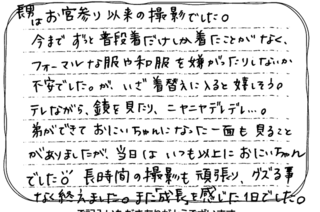 長男はお宮参り以来の撮影でした。
今までずっと普段着だけしか着たことがなく、
フォーマルな服や和服を嫌がったりしないか
不安でした。が、いざ着替えに入ると嬉しそう。
テレながら、鏡を見たり、ニヤニヤデレデレ…。
弟ができておにいちゃんになった一面も見ること
がありましたが、当日はいつも以上におにいちゃん
でした!! 長時間の撮影も頑張り、グズる事
なく終えました。また成長を感じた1日でした。